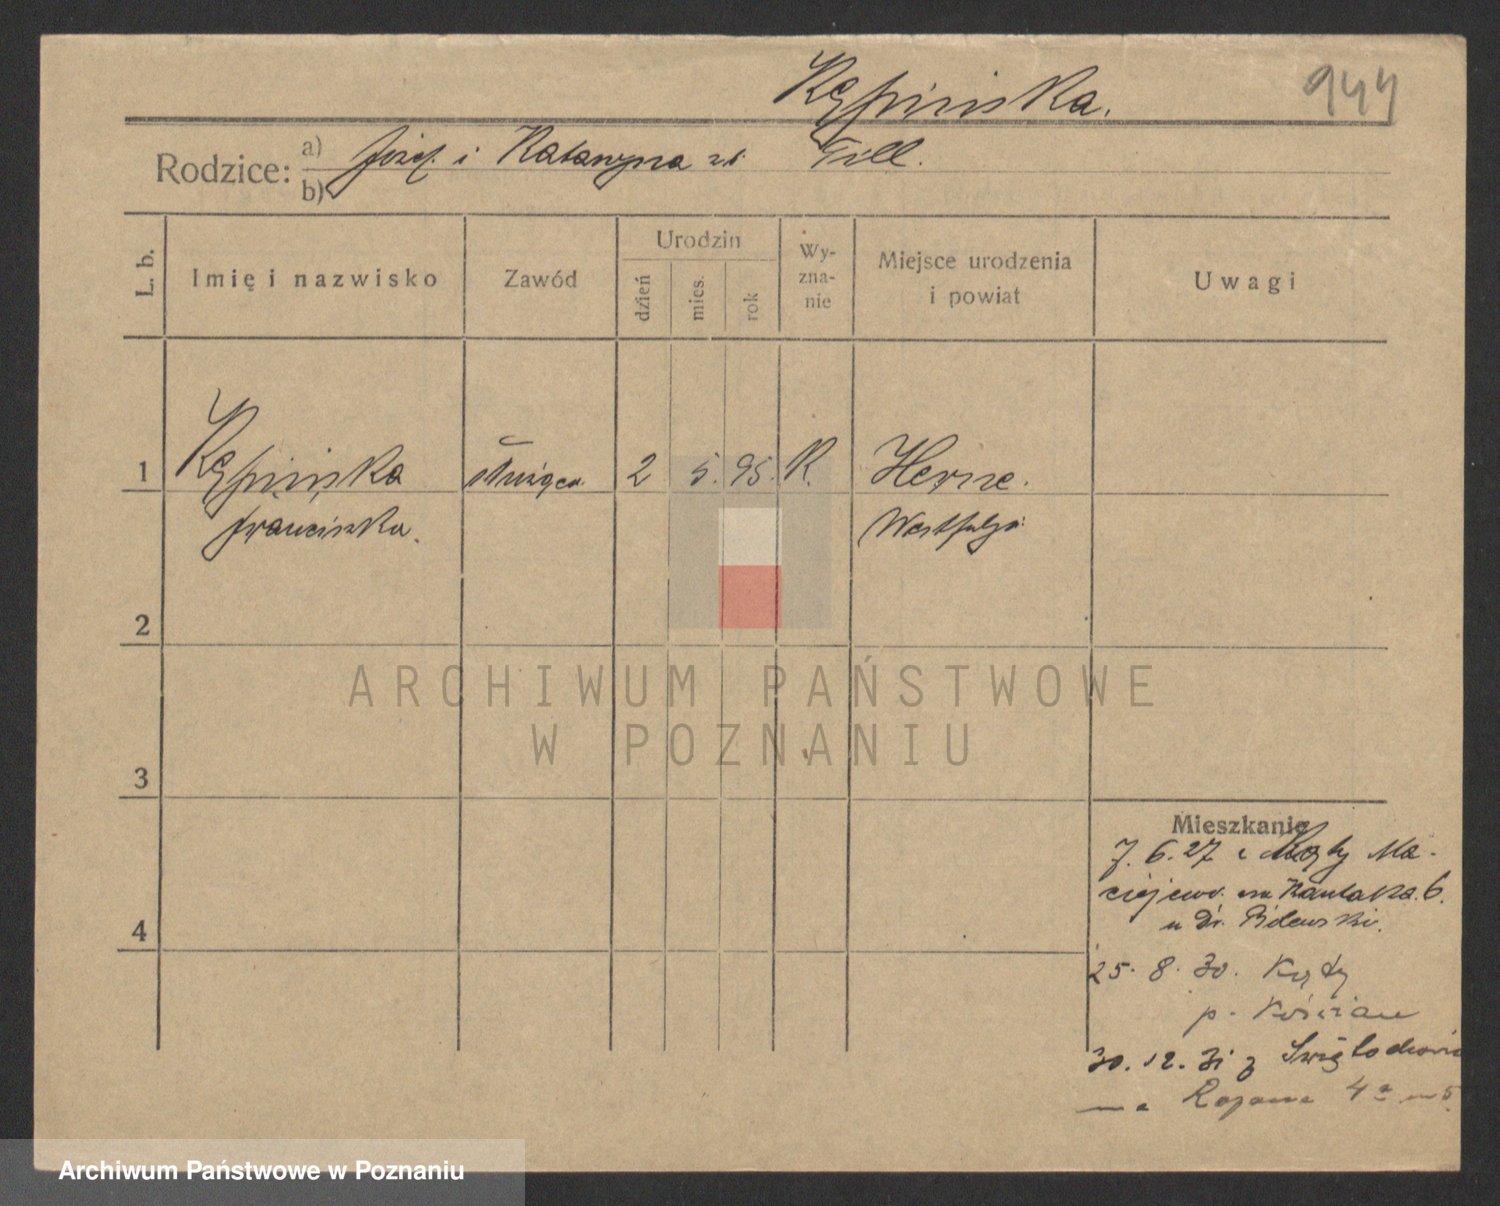 Kępińska.
944
Rodzice: a) Józef. i Katarzyna z d. Till.
b)
L. b.
Imię i nazwisko
Zawód
Urodzin
dzień
mies.
rok
Wy-
zna-
nie
Miejsce urodzenia
i powiat
Uwagi
1
Kępińska
służąca
2
5.
95.
R.
Herne.
Franciszka.
Westfalja
2
ARCHIWUM PAŃSTWOWE
W POZNANIU
3
Mieszkanie
7. 6. 27 z Kąty Ma-
ciejewo. na Kantaka. 6.
4
u Dr.
25. 8. 30. Kąty
p. Kościan
30. 12. 31 z
na 4a m 5
Archiwum Państwowe w Poznaniu